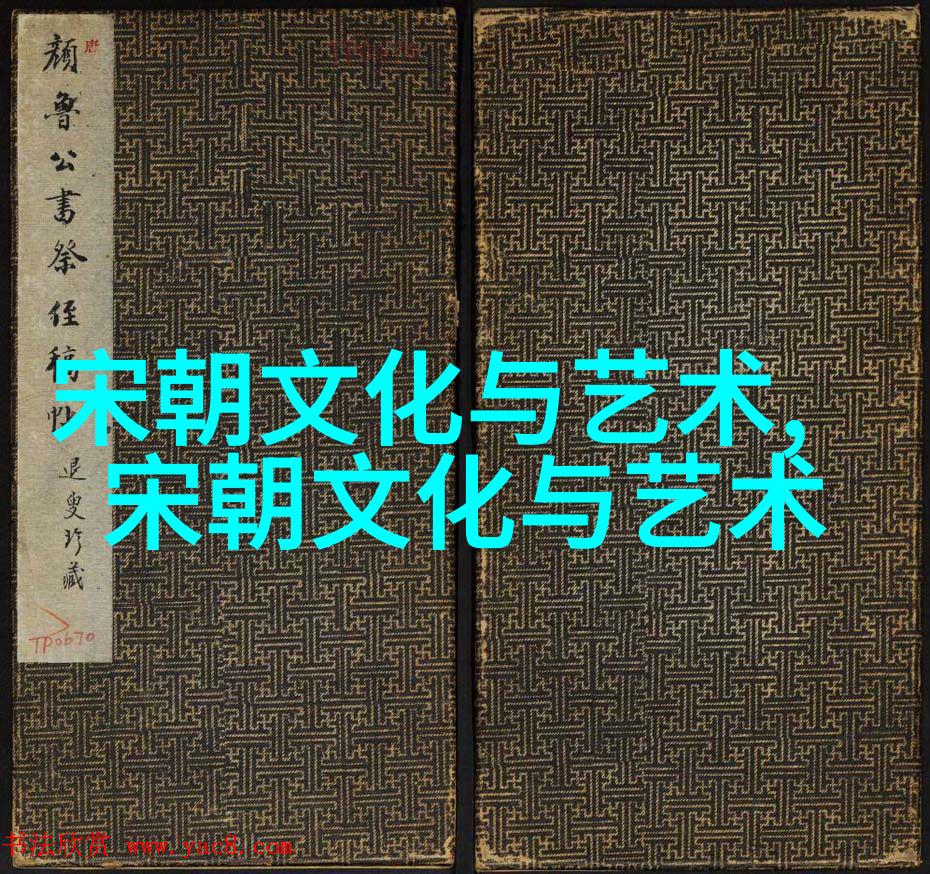 唐
顔魯公書祭侄稿帖
退叟珍藏
TP0670
宋朝文化与艺术,
宋朝文化与艺术
书法欣赏 www.yac8.com